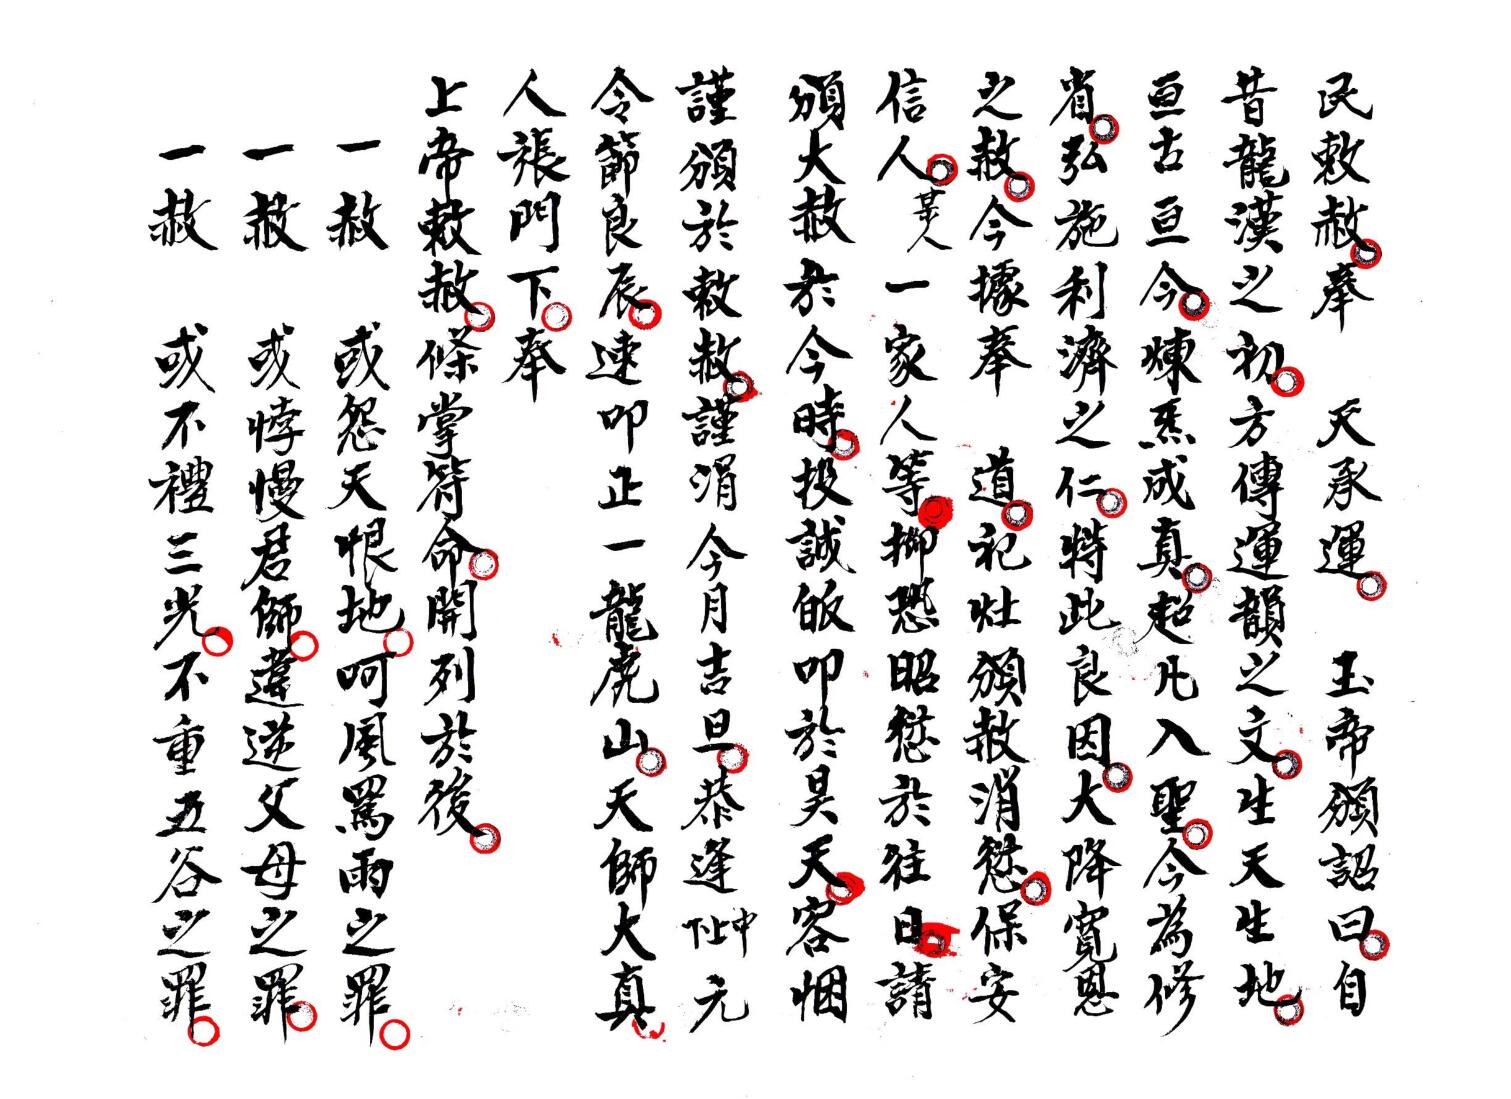 民敕赦奉 天承運 玉帝頒詔曰自
昔龍漢之初方傳運韻之文生天生地
亘古亘今煉炁成真超凡入聖今為修
省弘施利濟之仁特此良因大降寬恩
之赦今據奉 道祀灶頒赦消愆保安
信人某人一家人等抑恐昭愆於往日請
頒大赦於今時投誠皈叩於昊天容悃
謹頒於敕赦謹涓今月吉旦恭逢下上中元
令節良辰速叩正一龍虎山天師大真
人張門下奉
上帝敕赦條掌符命開列於後
一赦 或怨天恨地呵風罵雨之罪
一赦 或悖慢君師違逆父母之罪
一赦 或不禮三光不重五谷之罪